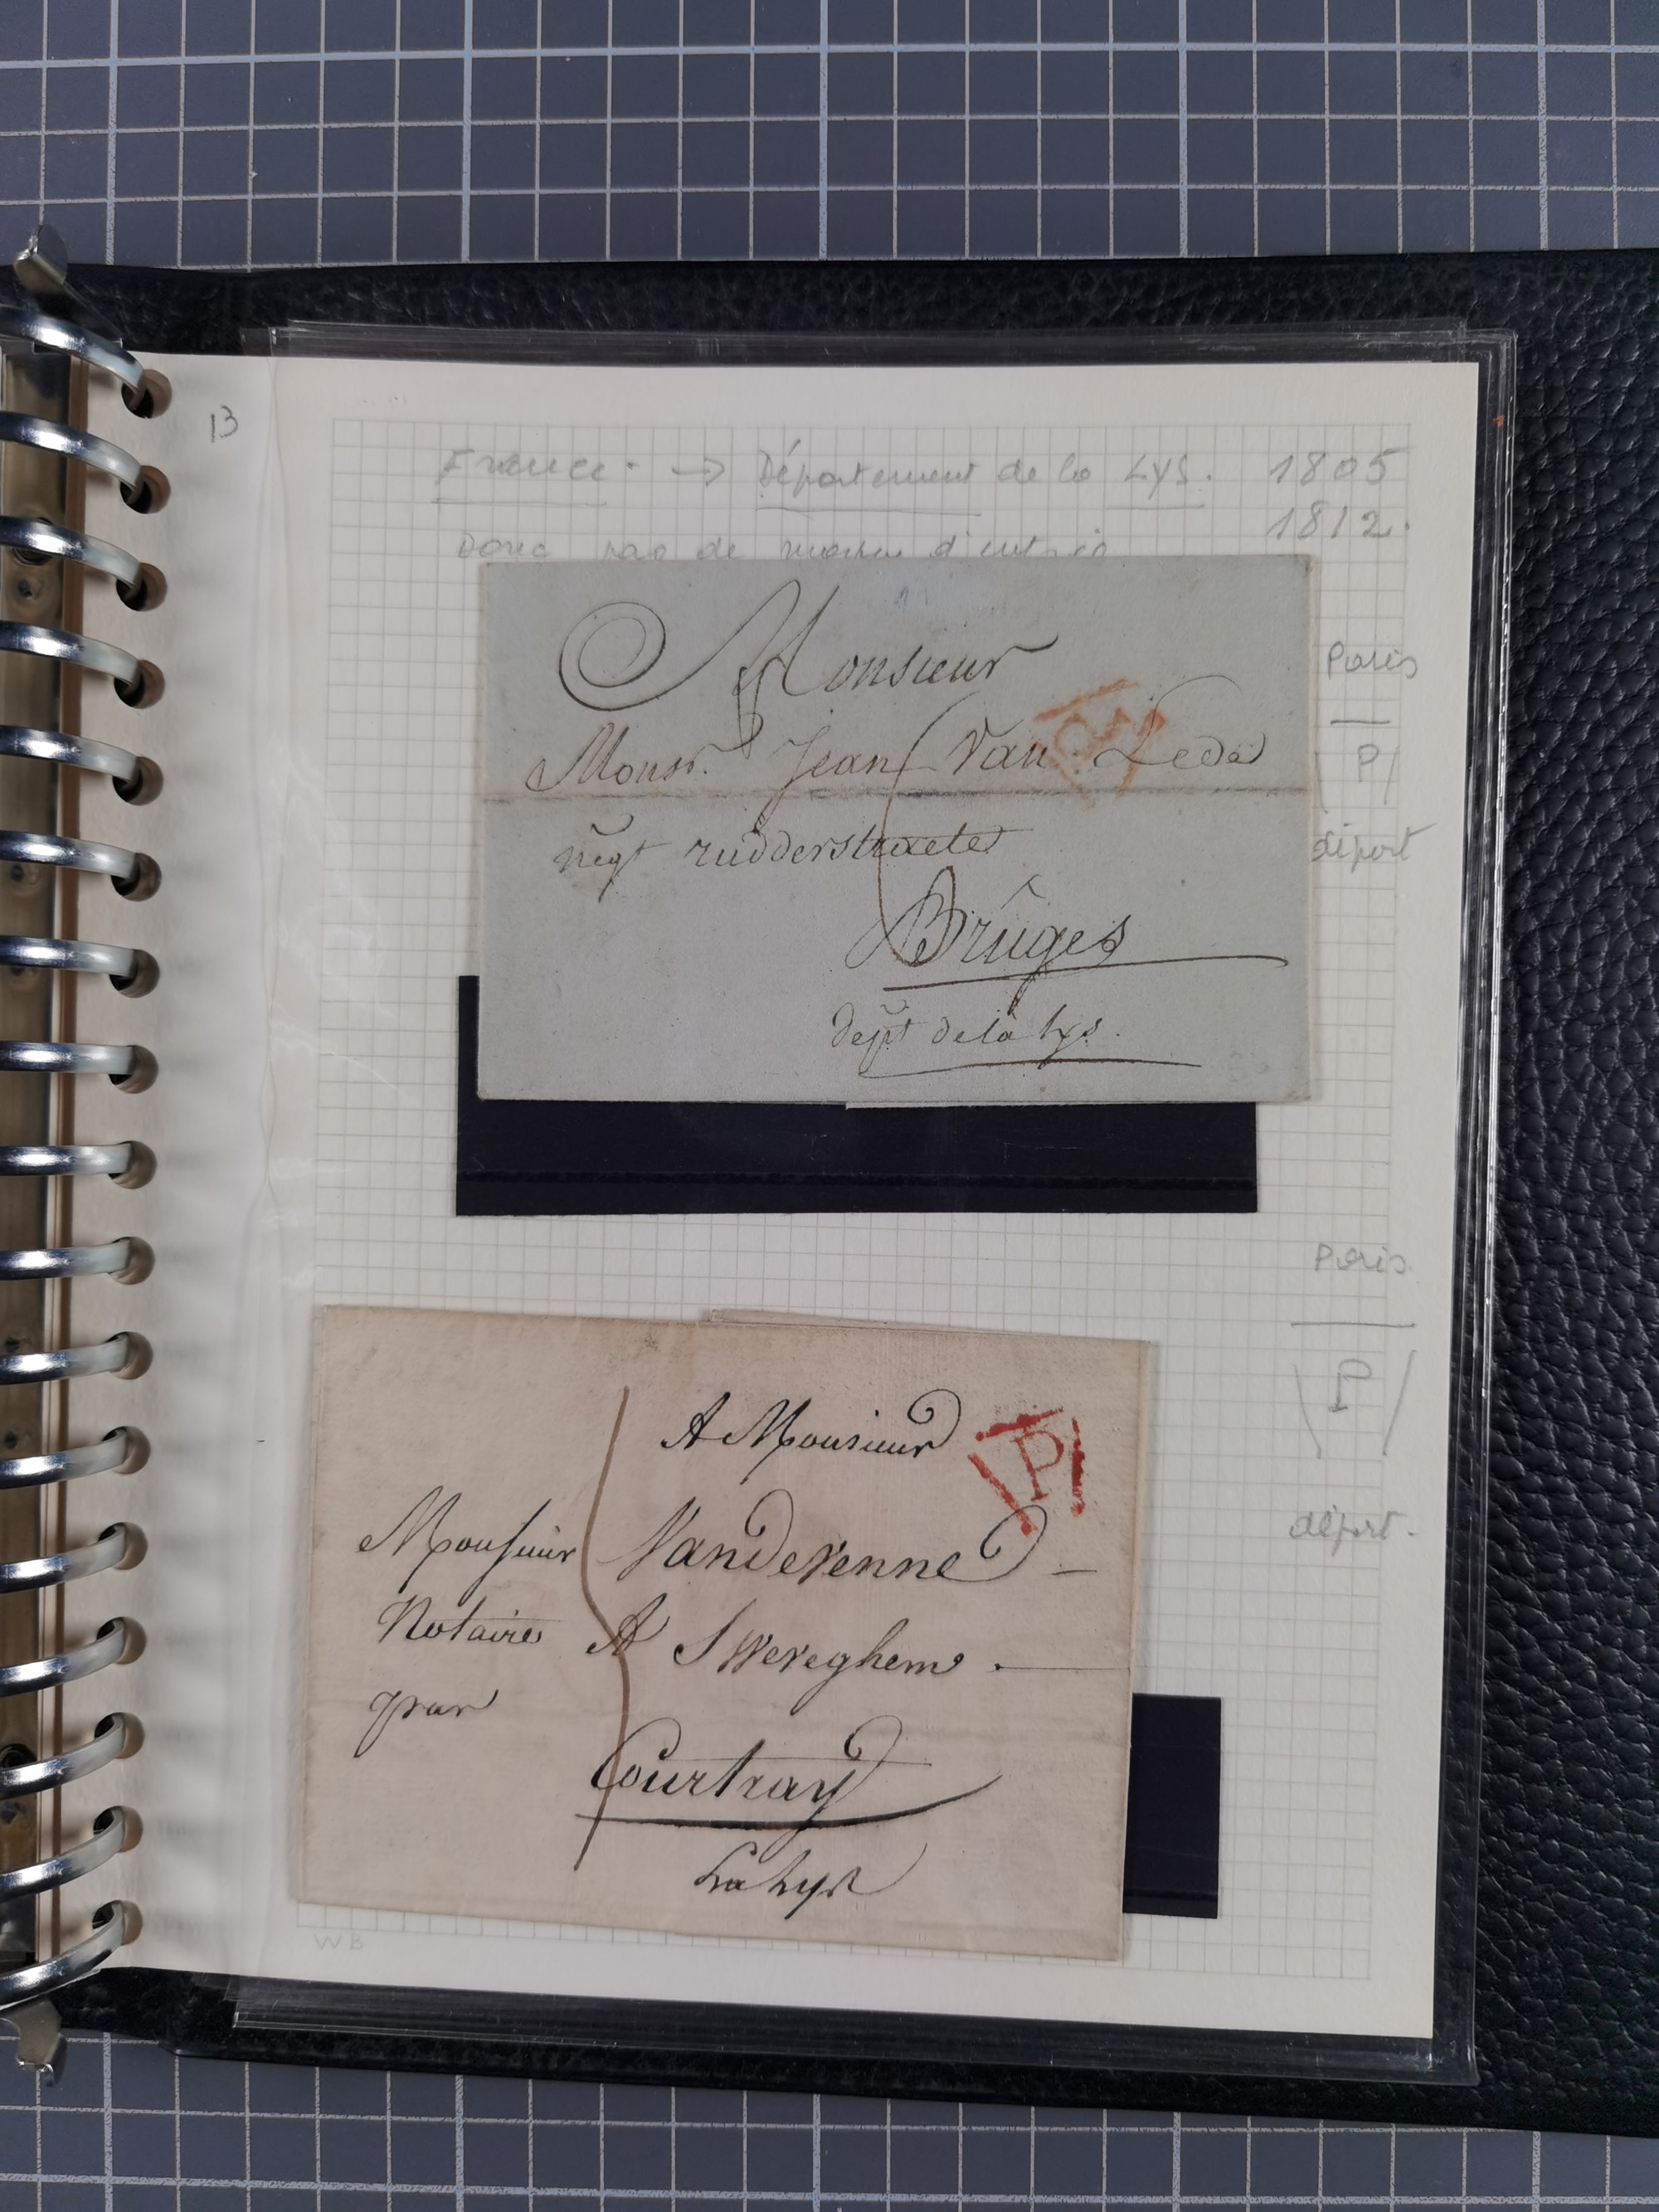 13
France. → Département de la LYS. 1805
1812.
Donc pas de marque d'entrée
Monsieur
Monsr. Jean Van Lede
negt ridderstraete
Bruges
dept de la Lys.
Paris
P
départ
Paris
P
départ.
A Monsieur
P
Monsieur Vandevenne
Notaire A Swereghem.
par
Courtray
La Lys
WB